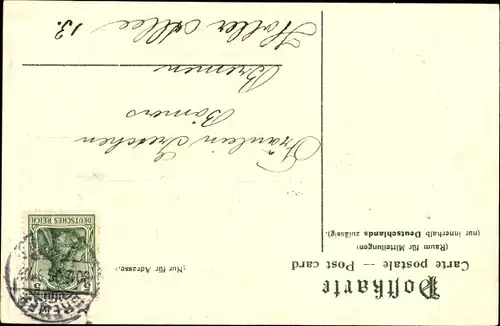 Postkarte
Carte postale — Post card
(Raum für Mitteilungen)
(nur innerhalb Deutschlands zulässig).
(Nur für Adresse.)
5
5
DEUTSCHES REICH
BREMEN
Fräulein Gretchen
Bömers
Bremen
Holler Allee
13.